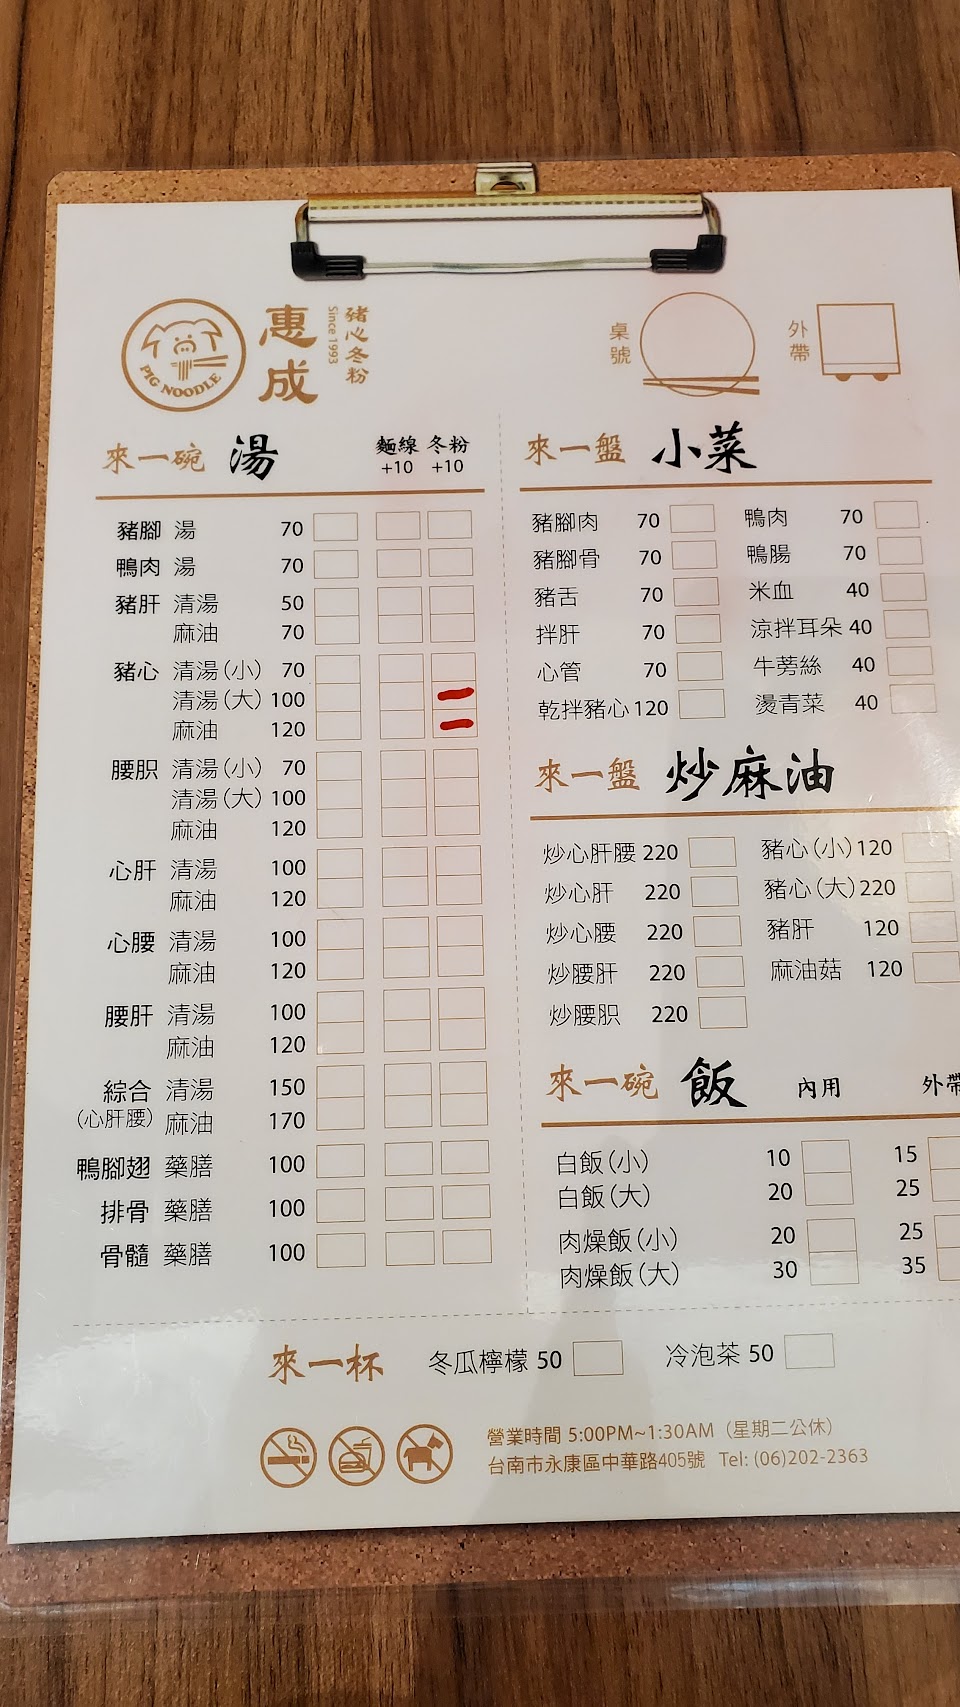 PIG NOODLE
惠成
豬心冬粉
Since 1993
桌號
外帶
來一碗 湯 麵線 冬粉
+10 +10
豬腳 湯 70
鴨肉 湯 70
豬肝 清湯 50
麻油 70
豬心 清湯(小) 70
清湯(大) 100
麻油 120
腰脤 清湯(小) 70
清湯(大) 100
麻油 120
心肝 清湯 100
麻油 120
心腰 清湯 100
麻油 120
腰肝 清湯 100
麻油 120
綜合 清湯 150
(心肝腰) 麻油 170
鴨腳翅 藥膳 100
排骨 藥膳 100
骨髓 藥膳 100
來一盤 小菜
豬腳肉 70 鴨肉 70
豬腳骨 70 鴨腸 70
豬舌 70 米血 40
拌肝 70 涼拌耳朵 40
心管 70 牛蒡絲 40
乾拌豬心 120 燙青菜 40
來一盤 炒麻油
炒心肝腰 220 豬心(小) 120
炒心肝 220 豬心(大) 220
炒心腰 220 豬肝 120
炒腰肝 220 麻油菇 120
炒腰脤 220
來一碗 飯 內用 外帶
白飯(小) 10 15
白飯(大) 20 25
肉燥飯(小) 20 25
肉燥飯(大) 30 35
來一杯 冬瓜檸檬 50 冷泡茶 50
營業時間 5:00PM~1:30AM (星期二公休)
台南市永康區中華路405號 Tel: (06)202-2363